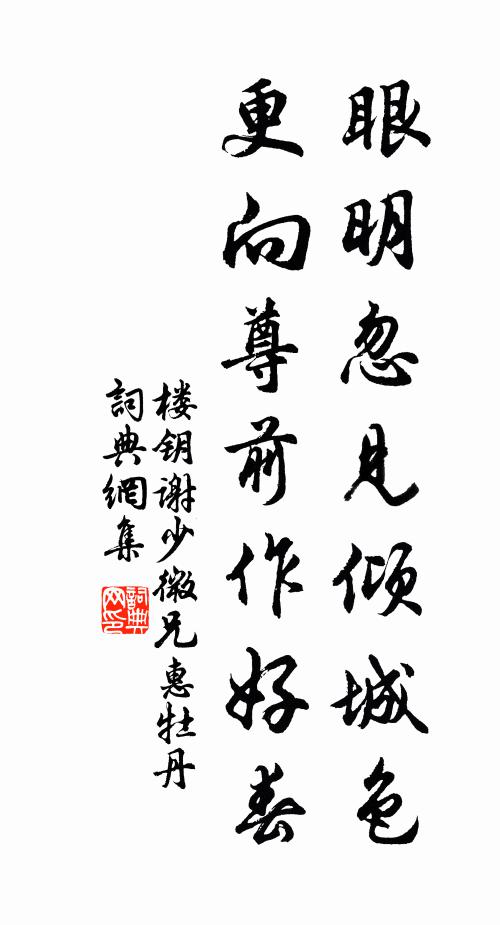 眼明忽见倾城色
更向尊前作好春
楼钥谢少微兄惠牡丹
詞典網集
詞典
网印